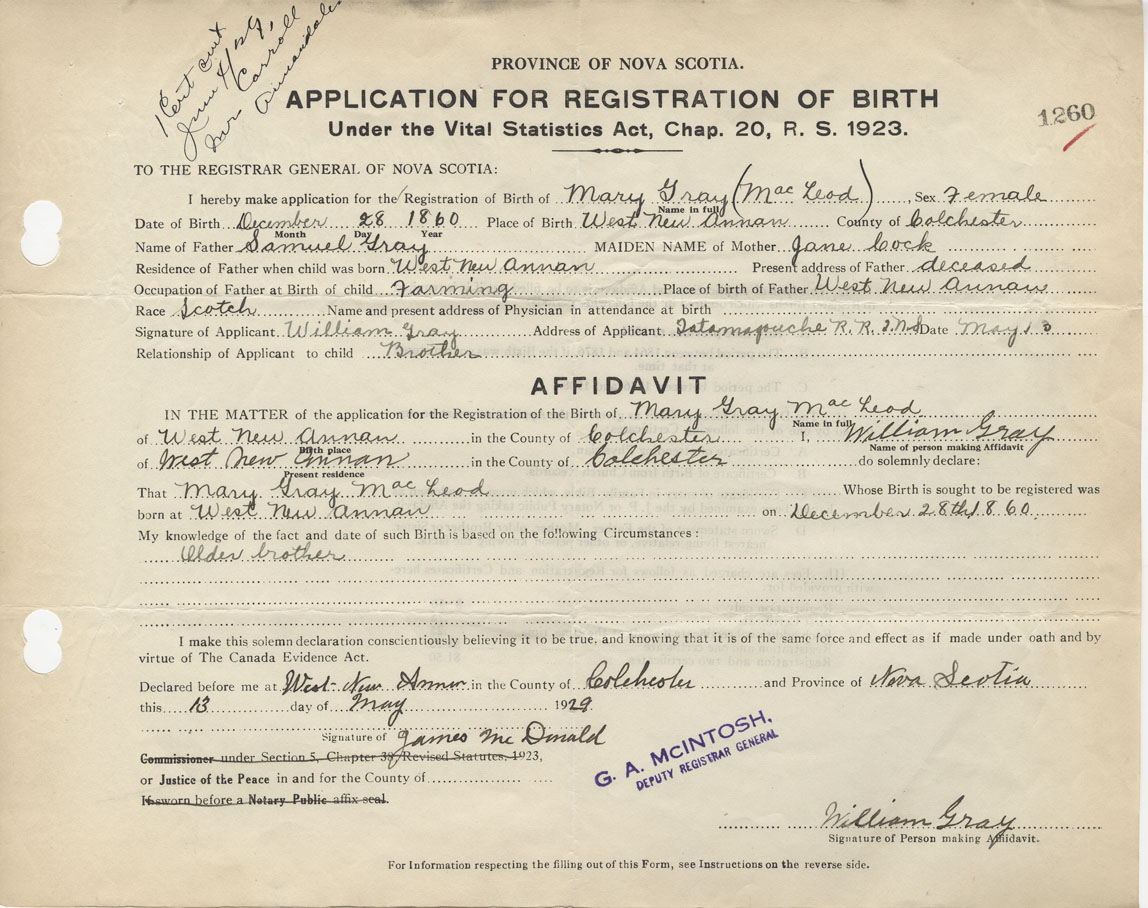 1 Cert
Mr Carroll
Annandale
PROVINCE OF NOVA SCOTIA.
APPLICATION FOR REGISTRATION OF BIRTH
Under the Vital Statistics Act, Chap. 20, R. S. 1923.
1260
TO THE REGISTRAR GENERAL OF NOVA SCOTIA:
I hereby make application for the Registration of Birth of Mary Gray (Mac Leod) Sex Female
Name in full
Date of Birth December 28 1860 Place of Birth West New Annan County of Colchester
Month Day Year
Name of Father Samuel Gray MAIDEN NAME of Mother Jane Cock
Residence of Father when child was born West New Annan Present address of Father deceased
Occupation of Father at Birth of child Farming Place of birth of Father West New Annan
Race Scotch Name and present address of Physician in attendance at birth
Signature of Applicant William Gray Address of Applicant Tatamagouche R. R. Date May 13
Relationship of Applicant to child Brother
AFFIDAVIT
IN THE MATTER of the application for the Registration of the Birth of Mary Gray Mac Leod
Name in full
of West New Annan in the County of Colchester I, William Gray
Birth place Name of person making Affidavit
of West New Annan in the County of Colchester do solemnly declare:
Present residence
That Mary Gray Mac Leod Whose Birth is sought to be registered was
born at West New Annan on December 28th 1860
My knowledge of the fact and date of such Birth is based on the following Circumstances:
Older brother
I make this solemn declaration conscientiously believing it to be true, and knowing that it is of the same force and effect as if made under oath and by
virtue of The Canada Evidence Act.
Declared before me at West New Annan in the County of Colchester and Province of Nova Scotia
this 13 day of May 1929
Signature of James McDonald
Commissioner under Section 5, Chapter 38, Revised Statutes, 1923,
or Justice of the Peace in and for the County of
If sworn before a Notary Public affix seal.
G. A. McINTOSH,
DEPUTY REGISTRAR GENERAL
William Gray
Signature of Person making Affidavit.
For Information respecting the filling out of this Form, see Instructions on the reverse side.